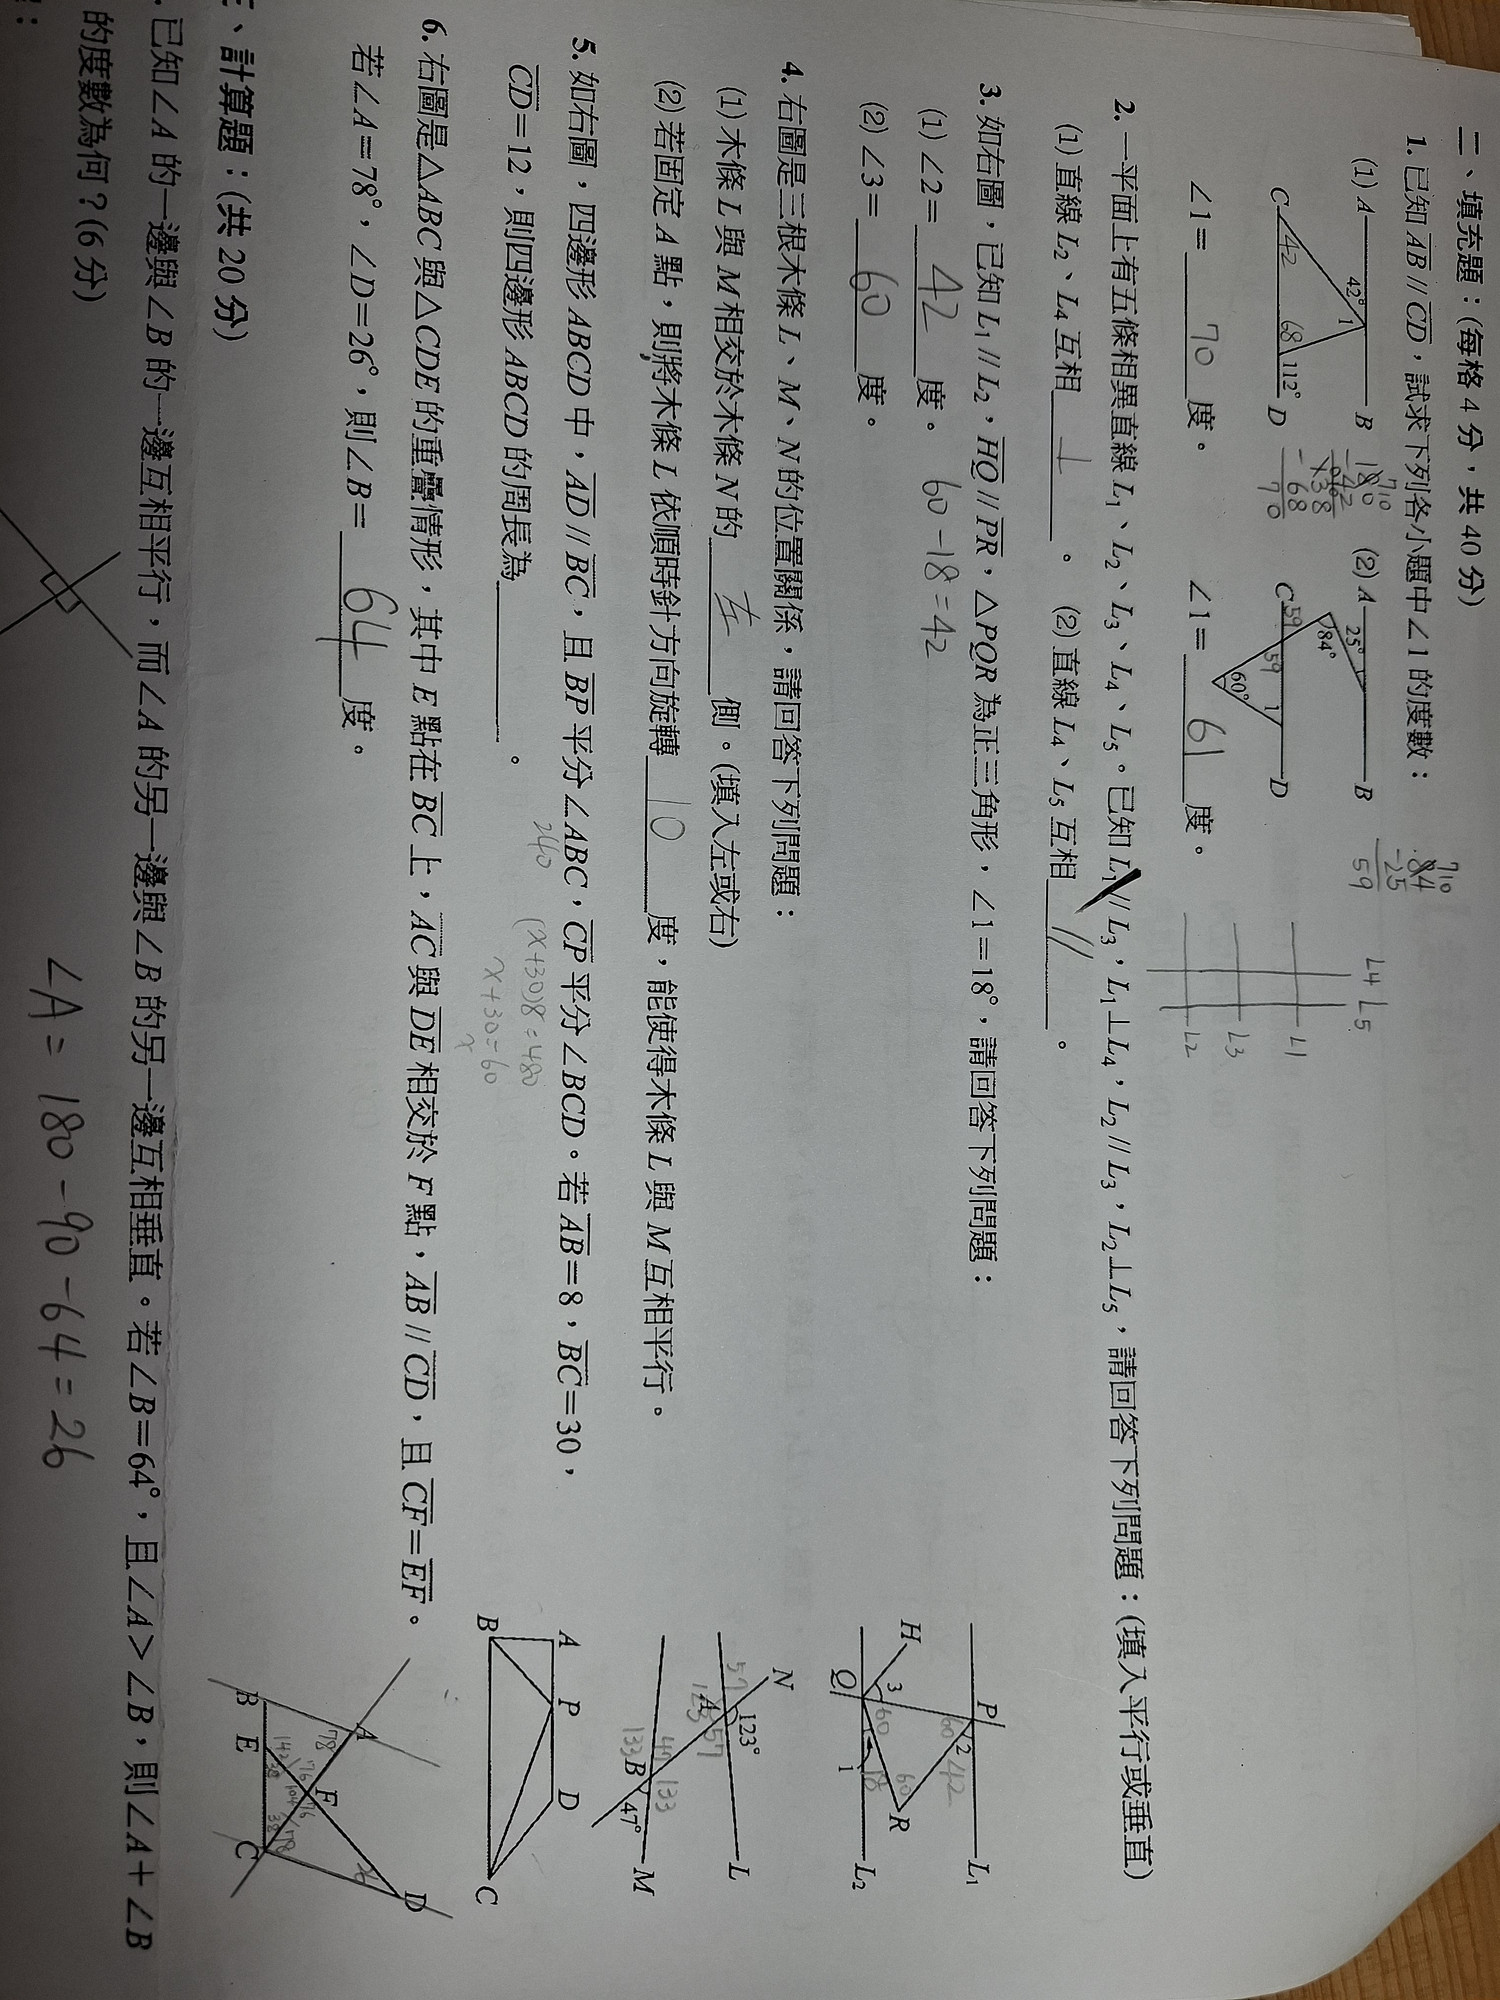 二、填充題：(每格 4 分，共 40 分)
1. 已知 AB // CD，試求下列各小題中∠1 的度數：
(1) A B 42° 1 C 42 68 112° D
180 - 42 138 - 68 70
(2) A B 25° 84° C 59 59 1 D 60°
84 - 25 59
∠1= 70 度。 ∠1= 61 度。
L4 L5 L1 L3 L2
2. 一平面上有五條相異直線 L1、L2、L3、L4、L5。已知 L1 // L3，L1⊥L4，L2 // L3，L2⊥L5，請回答下列問題：(填入平行或垂直)
(1) 直線 L2、L4 互相 ⊥ 。 (2) 直線 L4、L5 互相 // 。
3. 如右圖，已知 L1 // L2，HQ // PR，△PQR 為正三角形，∠1＝18°，請回答下列問題：
(1) ∠2= 42 度。 60-18=42
(2) ∠3= 60 度。
P L1 2 60 42 H 3 60 60 R Q 1 18 L2
4. 右圖是三根木條 L、M、N 的位置關係，請回答下列問題：
(1) 木條 L 與 M 相交於木條 N 的 左 側。(填入左或右)
(2) 若固定 A 點，則將木條 L 依順時針方向旋轉 10 度，能使得木條 L 與 M 互相平行。
N 123° 57 A 57 123 L 47 133 B 133 47° M
5. 如右圖，四邊形 ABCD 中，AD // BC，且 BP 平分∠ABC，CP 平分∠BCD。若 AB＝8，BC＝30，
CD＝12，則四邊形 ABCD 的周長為 。
240 (x+30)8=480
x+30=60
x
A P D B C
6. 右圖是△ABC 與△CDE 的重疊情形，其中 E 點在 BC 上，AC 與 DE 相交於 F 點，AB // CD，且 CF＝EF。
若∠A＝78°，∠D＝26°，則∠B＝ 64 度。
A 78 F 76 76 104 B E 142 38 38 78 C 26 D
、計算題：(共 20 分)
. 已知∠A 的一邊與∠B 的一邊互相平行，而∠A 的另一邊與∠B 的另一邊互相垂直。若∠B＝64°，且∠A＞∠B，則∠A＋∠B
的度數為何？(6 分)
∠A = 180 - 90 - 64 = 26